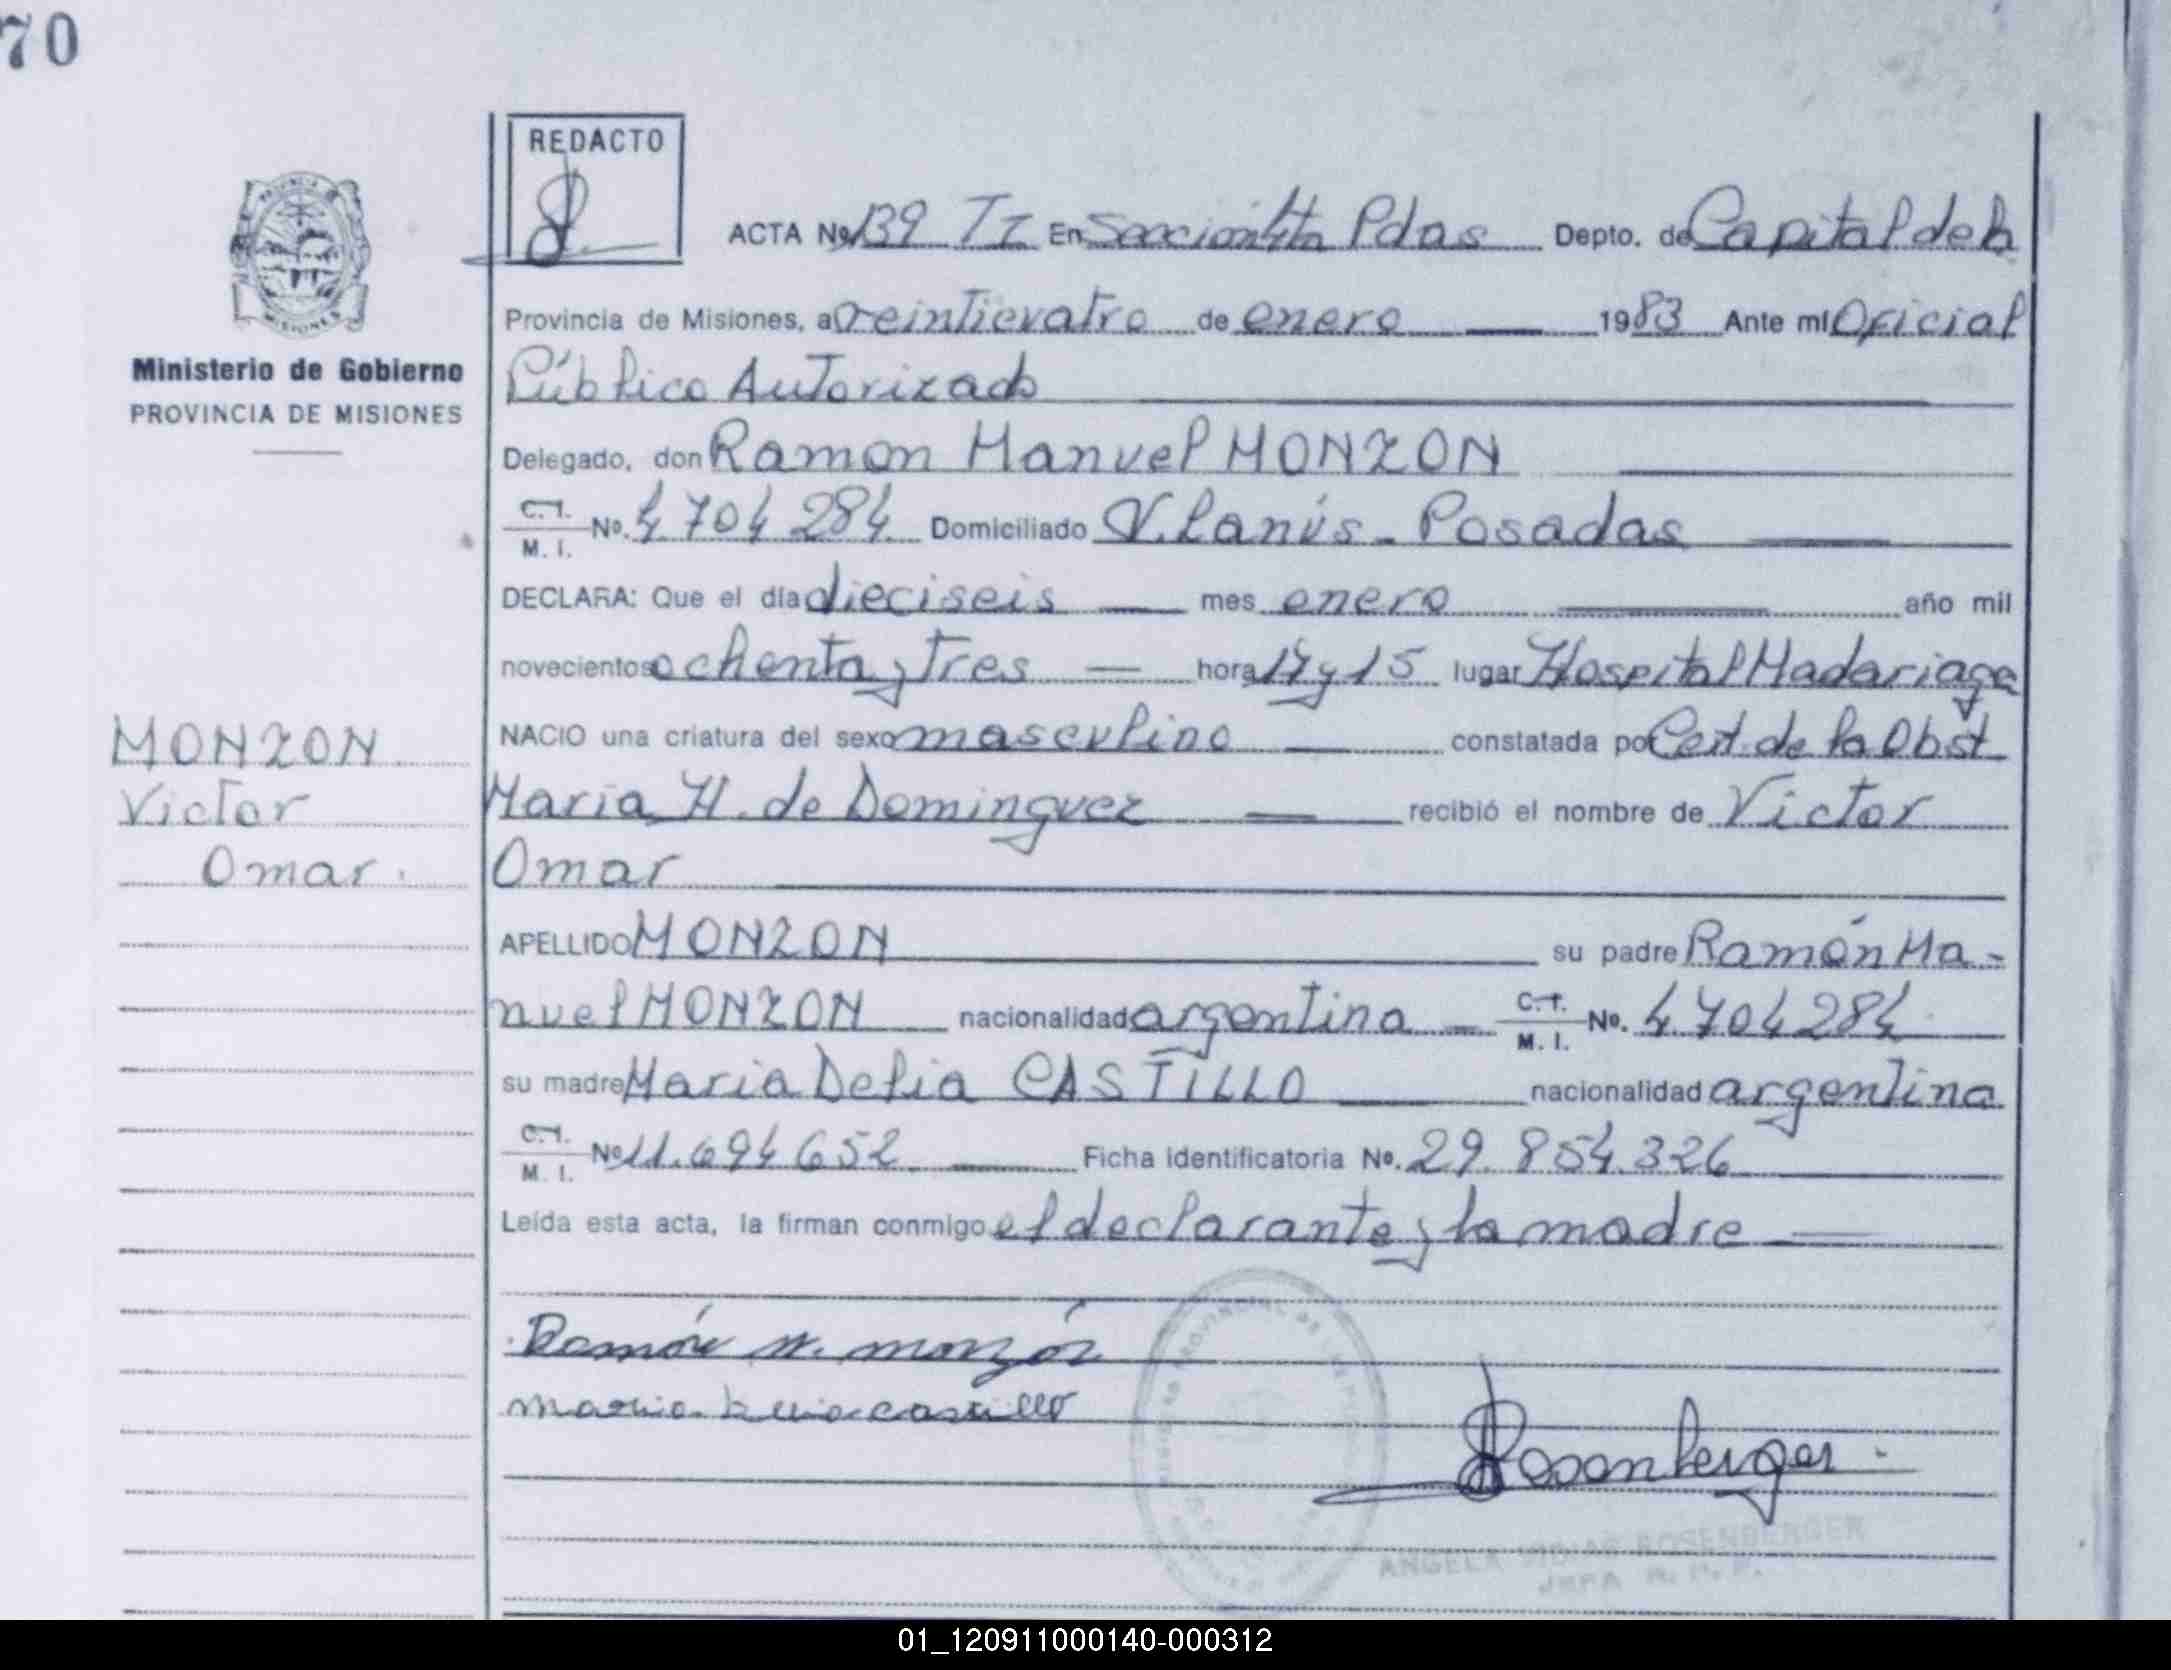 70
REDACTO
ACTA Nº 139 TI En Sección 4ta Pdas Depto. de Capital de la
Provincia de Misiones, a veinticuatro de enero 1983 Ante mí Oficial
Público Autorizado
Ministerio de Gobierno
PROVINCIA DE MISIONES
Delegado, don Ramon Manuel MONZON
C.I. M. I. Nº. 4704284 Domiciliado V. Lanús - Posadas
DECLARA: Que el día dieciseis mes enero año mil
novecientos ochenta y tres hora 17 y 15 lugar Hospital Madariaga
NACIO una criatura del sexo masculino constatada por Cert. de la Obst
Maria H. de Dominguez recibió el nombre de Victor
Omar
MONZON
Victor
Omar.
APELLIDO MONZON su padre Ramón Ma-
nuel MONZON nacionalidad argentina C.I. M. I. Nº. 4704284
su madre Maria Delia CASTILLO nacionalidad argentina
C.I. M. I. Nº 11.694652 Ficha identificatoria Nº. 29.854.326
Leída esta acta, la firman conmigo el declarante y la madre
Ramón M. Monzón
Maria Delia Castillo
Rosenberger
ANGELA ROSENBERGER
JEFA
01_120911000140-000312